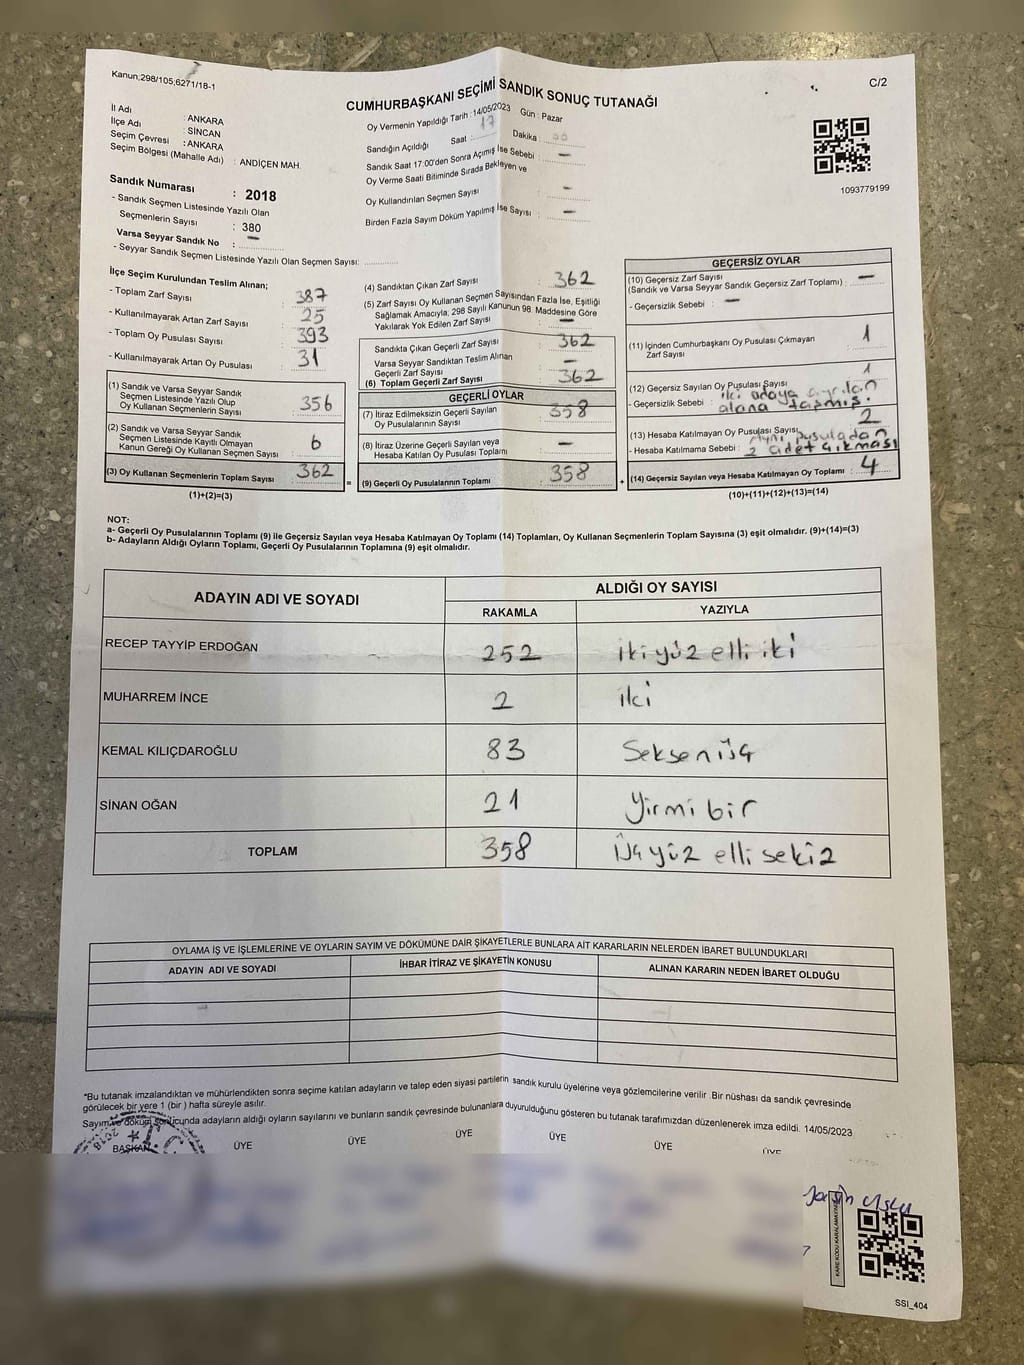 Kanun;298/105;6271/18-1
C/2
CUMHURBAŞKANI SEÇİMİ SANDIK SONUÇ TUTANAĞI
İl Adı : ANKARA
İlçe Adı : SİNCAN
Seçim Çevresi : ANKARA
Seçim Bölgesi (Mahalle Adı) : ANDİÇEN MAH.
Sandık Numarası : 2018
- Sandık Seçmen Listesinde Yazılı Olan
Seçmenlerin Sayısı : 380
Varsa Seyyar Sandık No : —
- Seyyar Sandık Seçmen Listesinde Yazılı Olan Seçmen Sayısı:
Oy Vermenin Yapıldığı Tarih : 14/05/2023 Gün : Pazar
Sandığın Açıldığı Saat : 17 Dakika : 00
Sandık Saat 17:00'den Sonra Açımış İse Sebebi : —
Oy Verme Saati Bitiminde Sırada Bekleyen ve
Oy Kullandırılan Seçmen Sayısı : —
Birden Fazla Sayım Döküm Yapılmış İse Sayısı : —
1093779199
İlçe Seçim Kurulundan Teslim Alınan;
- Toplam Zarf Sayısı : 387
- Kullanılmayarak Artan Zarf Sayısı : 25
- Toplam Oy Pusulası Sayısı : 393
- Kullanılmayarak Artan Oy Pusulası : 31
(1) Sandık ve Varsa Seyyar Sandık
Seçmen Listesinde Yazılı Olup
Oy Kullanan Seçmenlerin Sayısı : 356
(2) Sandık ve Varsa Seyyar Sandık
Seçmen Listesinde Kayıtlı Olmayan
Kanun Gereği Oy Kullanan Seçmen Sayısı : 6
(3) Oy Kullanan Seçmenlerin Toplam Sayısı : 362
(1)+(2)=(3)
=
(4) Sandıktan Çıkan Zarf Sayısı : 362
(5) Zarf Sayısı Oy Kullanan Seçmen Sayısından Fazla İse, Eşitliği
Sağlamak Amacıyla; 298 Sayılı Kanunun 98. Maddesine Göre
Yakılarak Yok Edilen Zarf Sayısı : —
Sandıkta Çıkan Geçerli Zarf Sayısı : 362
Varsa Seyyar Sandıktan Teslim Alınan
Geçerli Zarf Sayısı : —
(6) Toplam Geçerli Zarf Sayısı : 362
GEÇERLİ OYLAR
(7) İtiraz Edilmeksizin Geçerli Sayılan
Oy Pusulalarının Sayısı : 358
(8) İtiraz Üzerine Geçerli Sayılan veya
Hesaba Katılan Oy Pusulası Toplamı : —
(9) Geçerli Oy Pusulalarının Toplamı : 358
+
GEÇERSİZ OYLAR
(10) Geçersiz Zarf Sayısı
(Sandık ve Varsa Seyyar Sandık Geçersiz Zarf Toplamı) : —
- Geçersizlik Sebebi : —
(11) İçinden Cumhurbaşkanı Oy Pusulası Çıkmayan
Zarf Sayısı : 1
(12) Geçersiz Sayılan Oy Pusulası Sayısı : 1
- Geçersizlik Sebebi : iki adaya ayrılan
alana taşmış.
(13) Hesaba Katılmayan Oy Pusulası Sayısı : 2
- Hesaba Katılmama Sebebi : Aynı pusuladan
2 adet çıkması
(14) Geçersiz Sayılan veya Hesaba Katılmayan Oy Toplamı : 4
(10)+(11)+(12)+(13)=(14)
NOT:
a- Geçerli Oy Pusulalarının Toplamı (9) ile Geçersiz Sayılan veya Hesaba Katılmayan Oy Toplamı (14) Toplamları, Oy Kullanan Seçmenlerin Toplam Sayısına (3) eşit olmalıdır. (9)+(14)=(3)
b- Adayların Aldığı Oyların Toplamı, Geçerli Oy Pusulalarının Toplamına (9) eşit olmalıdır.
ADAYIN ADI VE SOYADI
ALDIĞI OY SAYISI
RAKAMLA YAZIYLA
RECEP TAYYİP ERDOĞAN 252 İkiyüz elli iki
MUHARREM İNCE 2 iki
KEMAL KILIÇDAROĞLU 83 Seksenüç
SİNAN OĞAN 21 Yirmi bir
TOPLAM 358 Üçyüz elli sekiz
OYLAMA İŞ VE İŞLEMLERİNE VE OYLARIN SAYIM VE DÖKÜMÜNE DAİR ŞİKAYETLERLE BUNLARA AİT KARARLARIN NELERDEN İBARET BULUNDUKLARI
ADAYIN ADI VE SOYADI İHBAR İTİRAZ VE ŞİKAYETİN KONUSU ALINAN KARARIN NEDEN İBARET OLDUĞU
*Bu tutanak imzalandıktan ve mühürlendikten sonra seçime katılan adayların ve talep eden siyasi partilerin sandık kurulu üyelerine veya gözlemcilerine verilir. Bir nüshası da sandık çevresinde
görülecek bir yere 1 (bir) hafta süreyle asılır.
Sayım ve döküm sonucunda adayların aldığı oyların sayılarını ve bunların sandık çevresinde bulunanlara duyurulduğunu gösteren bu tutanak tarafımızdan düzenlenerek imza edildi. 14/05/2023
BAŞKAN ÜYE ÜYE ÜYE ÜYE ÜYE ÜYE
2018 T.C.
KARE KODU KARALAMAYINIZ
SSI_404